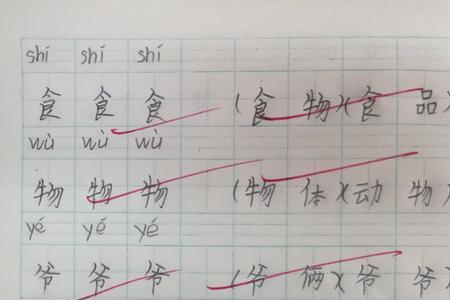 shí shí shí
食 食 食 (食 物)(食 品)
wù wù wù
物 物 物 (物 体)(动 物)
yé yé yé
爷 爷 爷 (爷 俩)(爷 爷)